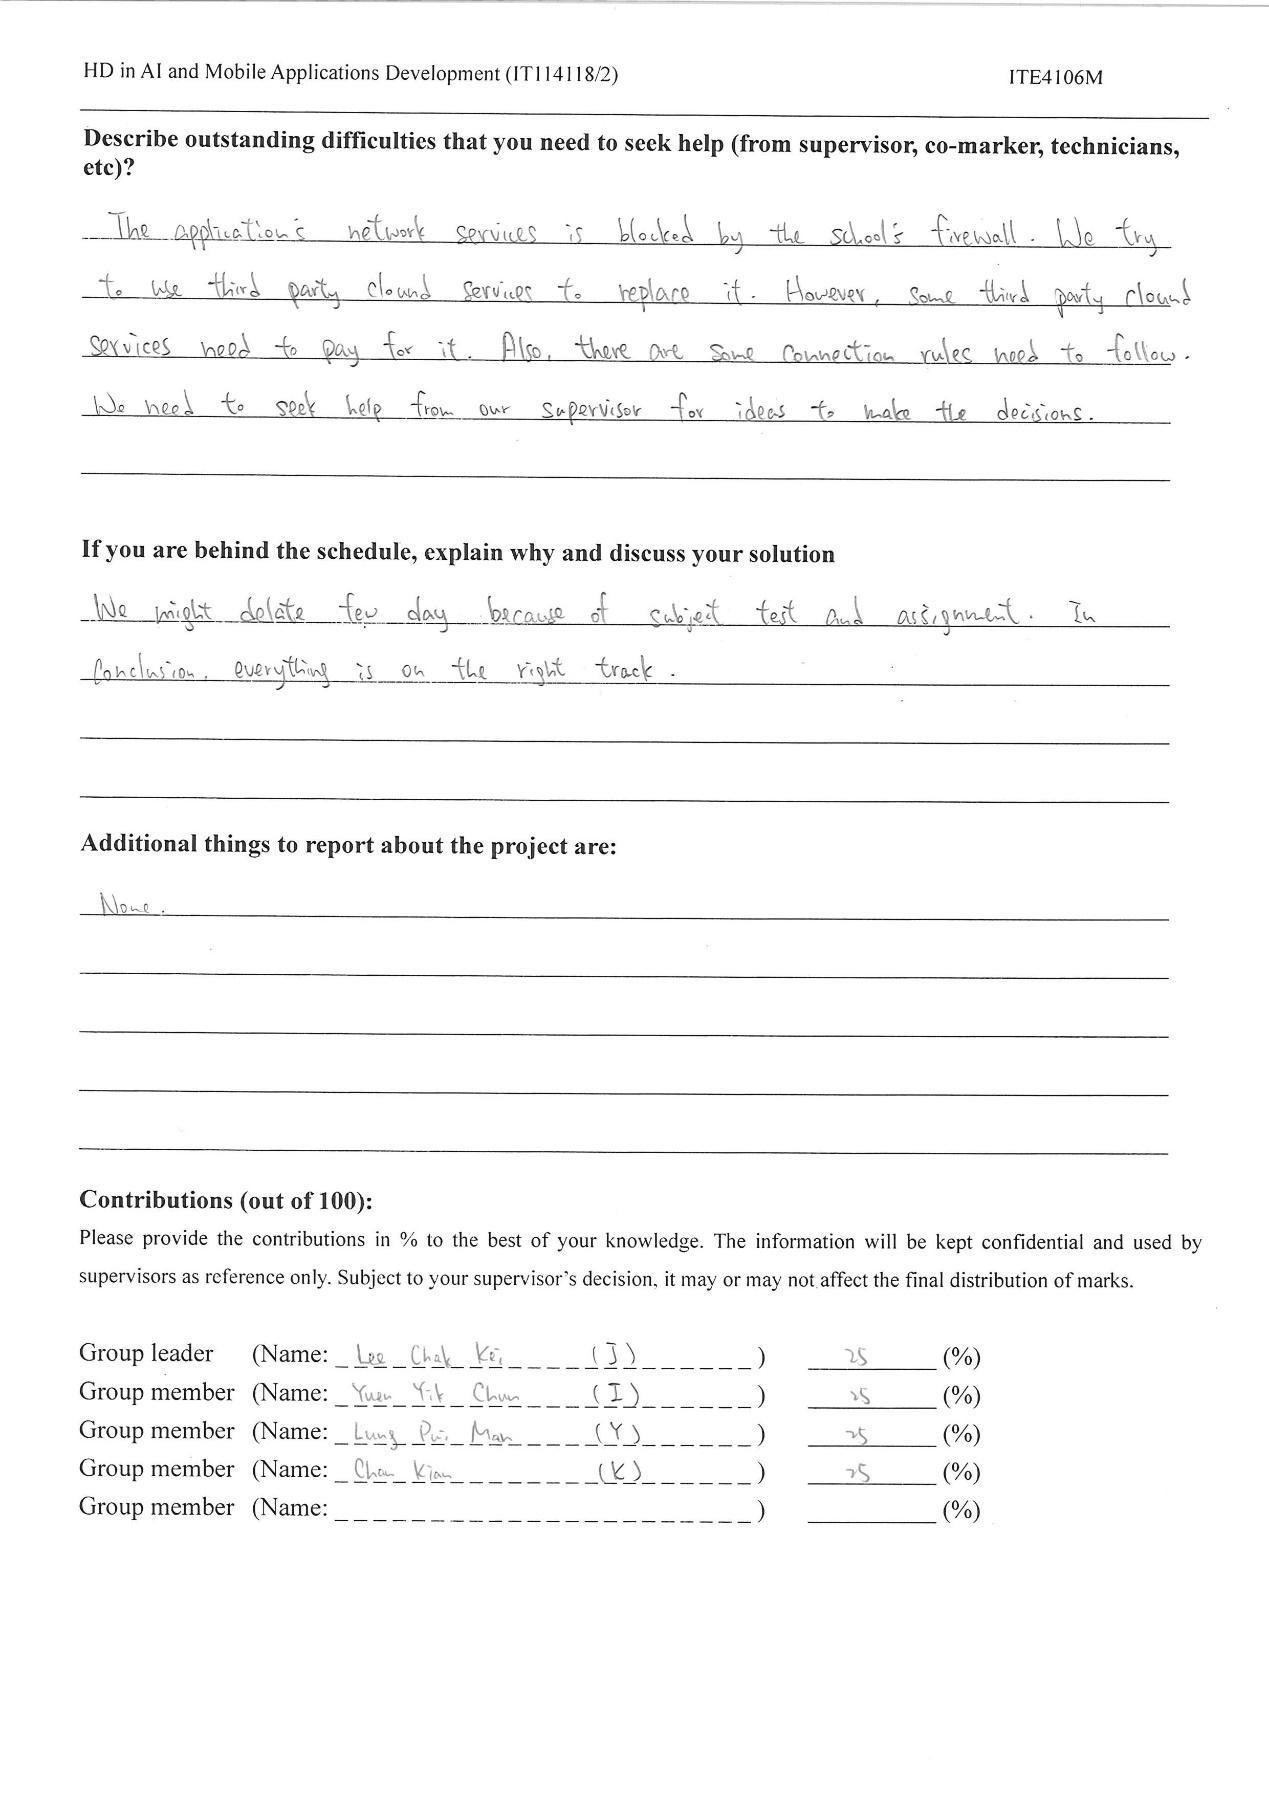 HD in AI and Mobile Applications Development (IT114118/2) ITE4106M
Describe outstanding difficulties that you need to seek help (from supervisor, co-marker, technicians,
etc)?
The application's network services is blocked by the school's firewall. We try
to use third party clound services to replace it. However, some third party clound
services need to pay for it. Also, there are some connection rules need to follow.
We need to seek help from our supervisor for ideas to make the decisions.
If you are behind the schedule, explain why and discuss your solution
We might delate few day because of subject test and assignment. In
Conclusion, everything is on the right track.
Additional things to report about the project are:
None.
Contributions (out of 100):
Please provide the contributions in % to the best of your knowledge. The information will be kept confidential and used by
supervisors as reference only. Subject to your supervisor's decision, it may or may not affect the final distribution of marks.
Group leader (Name: Lee Chak Kei (J) ) 25 (%)
Group member (Name: Yuen Yik Chun (I) ) 25 (%)
Group member (Name: Lung Pui Man (Y) ) 25 (%)
Group member (Name: Chan Kian (K) ) 25 (%)
Group member (Name: ) (%)